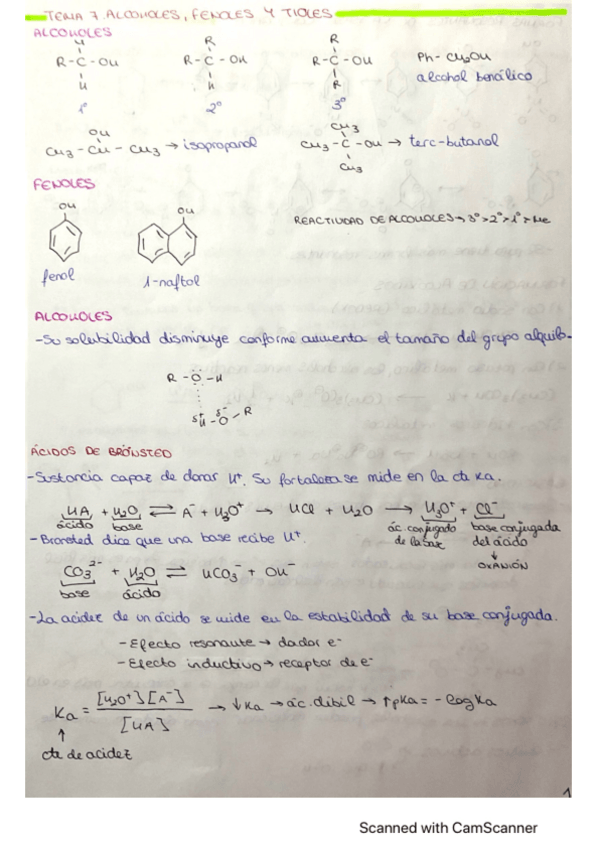 TEMA 7. ALCOHOLES, FENOLES Y TIOLES
ALCOHOLES
H R R
R-C-OH R-C-OH R-C-OH Ph-CH₂OH
H H R alcohol bencílico
1º 2º 3º
OH CH3
CH3-CH-CH3 → isopropanol CH3-C-OH → terc-butanol
CH3
FENOLES
OH OH
REACTIVIDAD DE ALCOHOLES → 3º > 2º > 1º > Me
fenol 1-naftol
ALCOHOLES
-Su solubilidad disminuye conforme aumenta el tamaño del grupo alquilo.
R-O-H
δ+ δ-
H-O-R
ÁCIDOS DE BRÖNSTED
-Sustancia capaz de donar H⁺. Su fortaleza se mide en la cte Ka.
HA + H₂O ⇌ A⁻ + H₃O⁺ → HCl + H₂O → H₃O⁺ + Cl⁻
ácido base ác. conjugado de la base base conjugada del ácido
- Bronsted dice que una base recibe H⁺. ↓
OXANIÓN
CO3²⁻ + H₂O ⇌ HCO3⁻ + OH⁻
base ácido
-La acidez de un ácido se mide en la estabilidad de su base conjugada.
- Efecto resonante → dador e⁻
- Efecto inductivo → receptor de e⁻
Ka = [H₃O⁺][A⁻] / [HA] → ↓Ka → ác. débil → ↑pKa = -log Ka
↑
cte de acidez
1
Scanned with CamScanner